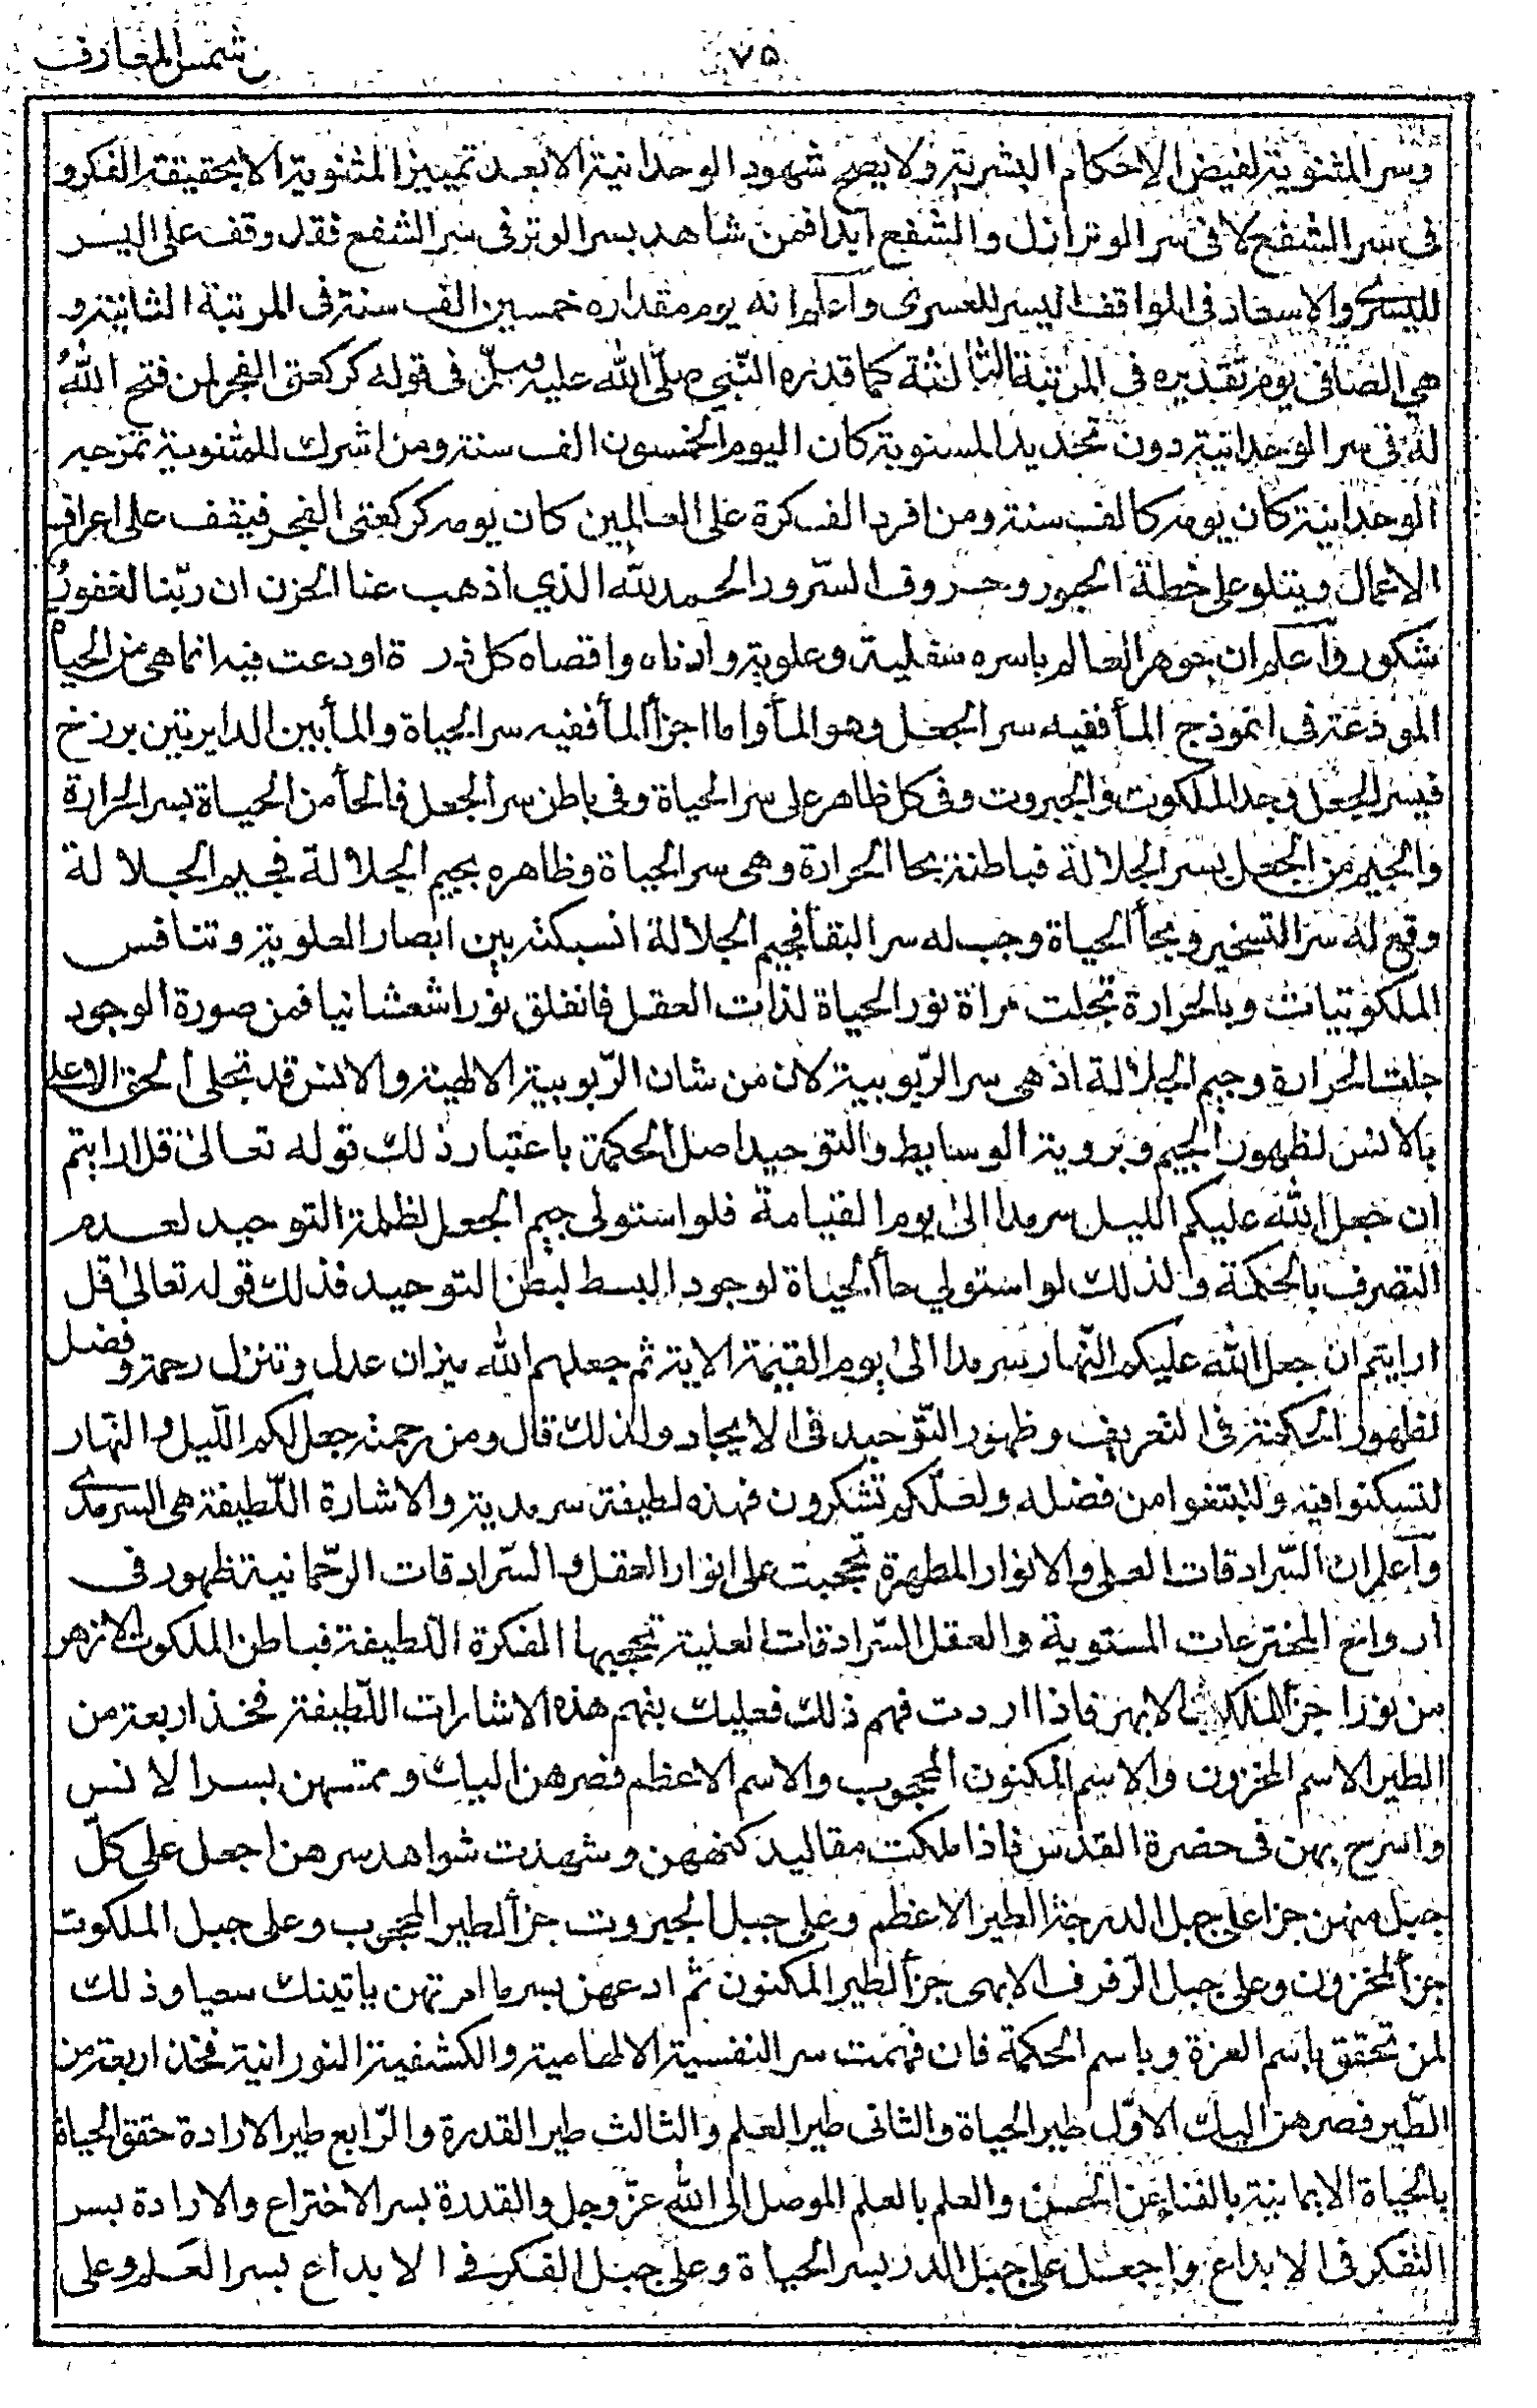 شمس المعارف
٧٥
وسر المثنوية لفيض الاحكام البشرية ولا يصح شهود الوحدانية الا بعد تمييز المثنوية الا بحقيقة الفكر و
فى سر الشفع لا فى سر الوتر ازل والشفع ابدا فمن شاهد بسر الوتر فى سر الشفع فقد وقف على اليسر
لليسرى والاسعاد فى المواقف اليسر للعسرى واعلم انه يوم مقداره خمسين الف سنة فى المرتبة الثانية و
هى الصافى يوم تقديره فى المرتبة الثالثة كما قدره النبي صلى الله عليه وسلم فى قوله كركعتى الفجر لمن فتح الله
له فى سر الوحدانية دون تحديد المسنوية كان اليوم الخمسون الف سنة ومن اشرك للمثنوية تمزجيه
الوحدانية كان يومه كالف سنة ومن افرد الفكرة على العالمين كان يومه كركعتى الفجر فيقف على اعراف
الاعمال ويتلو على خطة الحبور وحروف السرور الحمد لله الذي اذهب عنا الحزن ان ربنا لغفور
شكور واعلم ان جوهر العالم باسره سفلية وعلوية وادناه واقصاه كل ذرة اودعت فيه انما هى من الحياة
المودعة فى انموذج المأ ففيه سر الجعل وهو المأ واما اجزأ المأ ففيه سر الحياة والمأ بين الدايرتين برزخ
فبسر الجعل وجد الملكوت والجبروت وفى كل ظاهر على سر الحياة وفى باطن سر الجعل فالحأ من الحياة بسر الحرارة
والجيم من الجعل بسر الجلالة فباطنة بحا الحرارة وهى سر الحياة وظاهره بجيم الجلالة فجيم الجلالة
وقع له سر التسخير وبحأ الحياة وجب له سر البقأ فجيم الجلالة انسبكت بين ابصار العلوية وتنافس
الملكوتيات وبالحرارة تجلت مراة نور الحياة لذات العقل فانفلق نورا شعشعانيا فمن صورة الوجود
خلت الحرارة وجيم الجلالة اذ هى سر الربوبية لان من شان الربوبية الالهية والانس قد تجلى الحق الاعلى
بالانس لظهور الجيم وبروية الوسايط والتوحيد اصل الحكمة باعتبار ذلك قوله تعالى قل ارايتم
ان جعل الله عليكم الليل سرمدا الى يوم القيامة فلو استولى جيم الجعل لظلمة التوحيد لعدم
التصرف بالحكمة وكذلك لو استولي حأ الحياة لوجود البسط لبطن التوحيد فذلك قوله تعالى قل
ارايتم ان جعل الله عليكم النهار سرمدا الى يوم القيمة الاية ثم جعلهم الله ميزان عدل وتنزل رحمة وفضل
لظهور الحكمة فى التعريف وظهور التوحيد فى الايجاد ولذلك قال ومن رحمته جعل لكم الليل والنهار
لتسكنوا فيه ولتبتغوا من فضله ولعلكم تشكرون فهذه لطيفة سرمدية والاشارة اللطيفة هى السرمدى
واعلم ان السرادقات العلى والانوار المطهرة تحجبت على انوار العقل والسرادقات الرحمانية ظهور فى
ارواح المخترعات المستوية والعقل السرادقات العلية تحجبها الفكرة اللطيفة فباطن الملكوت الازهر
من نور اجزأ الابهر فاذا اردت فهم ذلك فعليك بفهم هذه الاشارات اللطيفة فخذ اربعة من
الطير الاسم المخزون والاسم المكنون المحجوب والاسم الاعظم فصرهن اليك ومتسهن بسر الانس
واسرح بهن فى حضرة القدس فاذا ملكت مقاليد كنههن وشهدت شواهد سرهن اجعل على كل
جبل منهن جزا على جبل الدر جزأ الطير الاعظم وعلى جبل الجبروت جزأ الطير المحجوب وعلى جبل الملكوت
جزأ المخزون وعلى جبل الرفرف الابهى جزأ الطير المكنون ثم ادعهن بسر ما امرتهن ياتينك سعيا وذلك
لمن تحقق باسم العزة وباسم الحكمة فان فهمت سر النفسية الالهامية والكشفية النورانية فخذ اربعة من
الطير فصرهن اليك الاول طير الحياة والثانى طير العلم والثالث طير القدرة والرابع طير الارادة حقق الحياة
بالحياة الايمانية بالفنا عن الحس والعلم بالعلم الموصل الى الله عز وجل والقدرة بسر الاختراع والارادة بسر
التفكر فى الابداع واجعل على جبل الدر بسر الحياة وعلى جبل الفكر فى الابداع بسر العلم وعلى